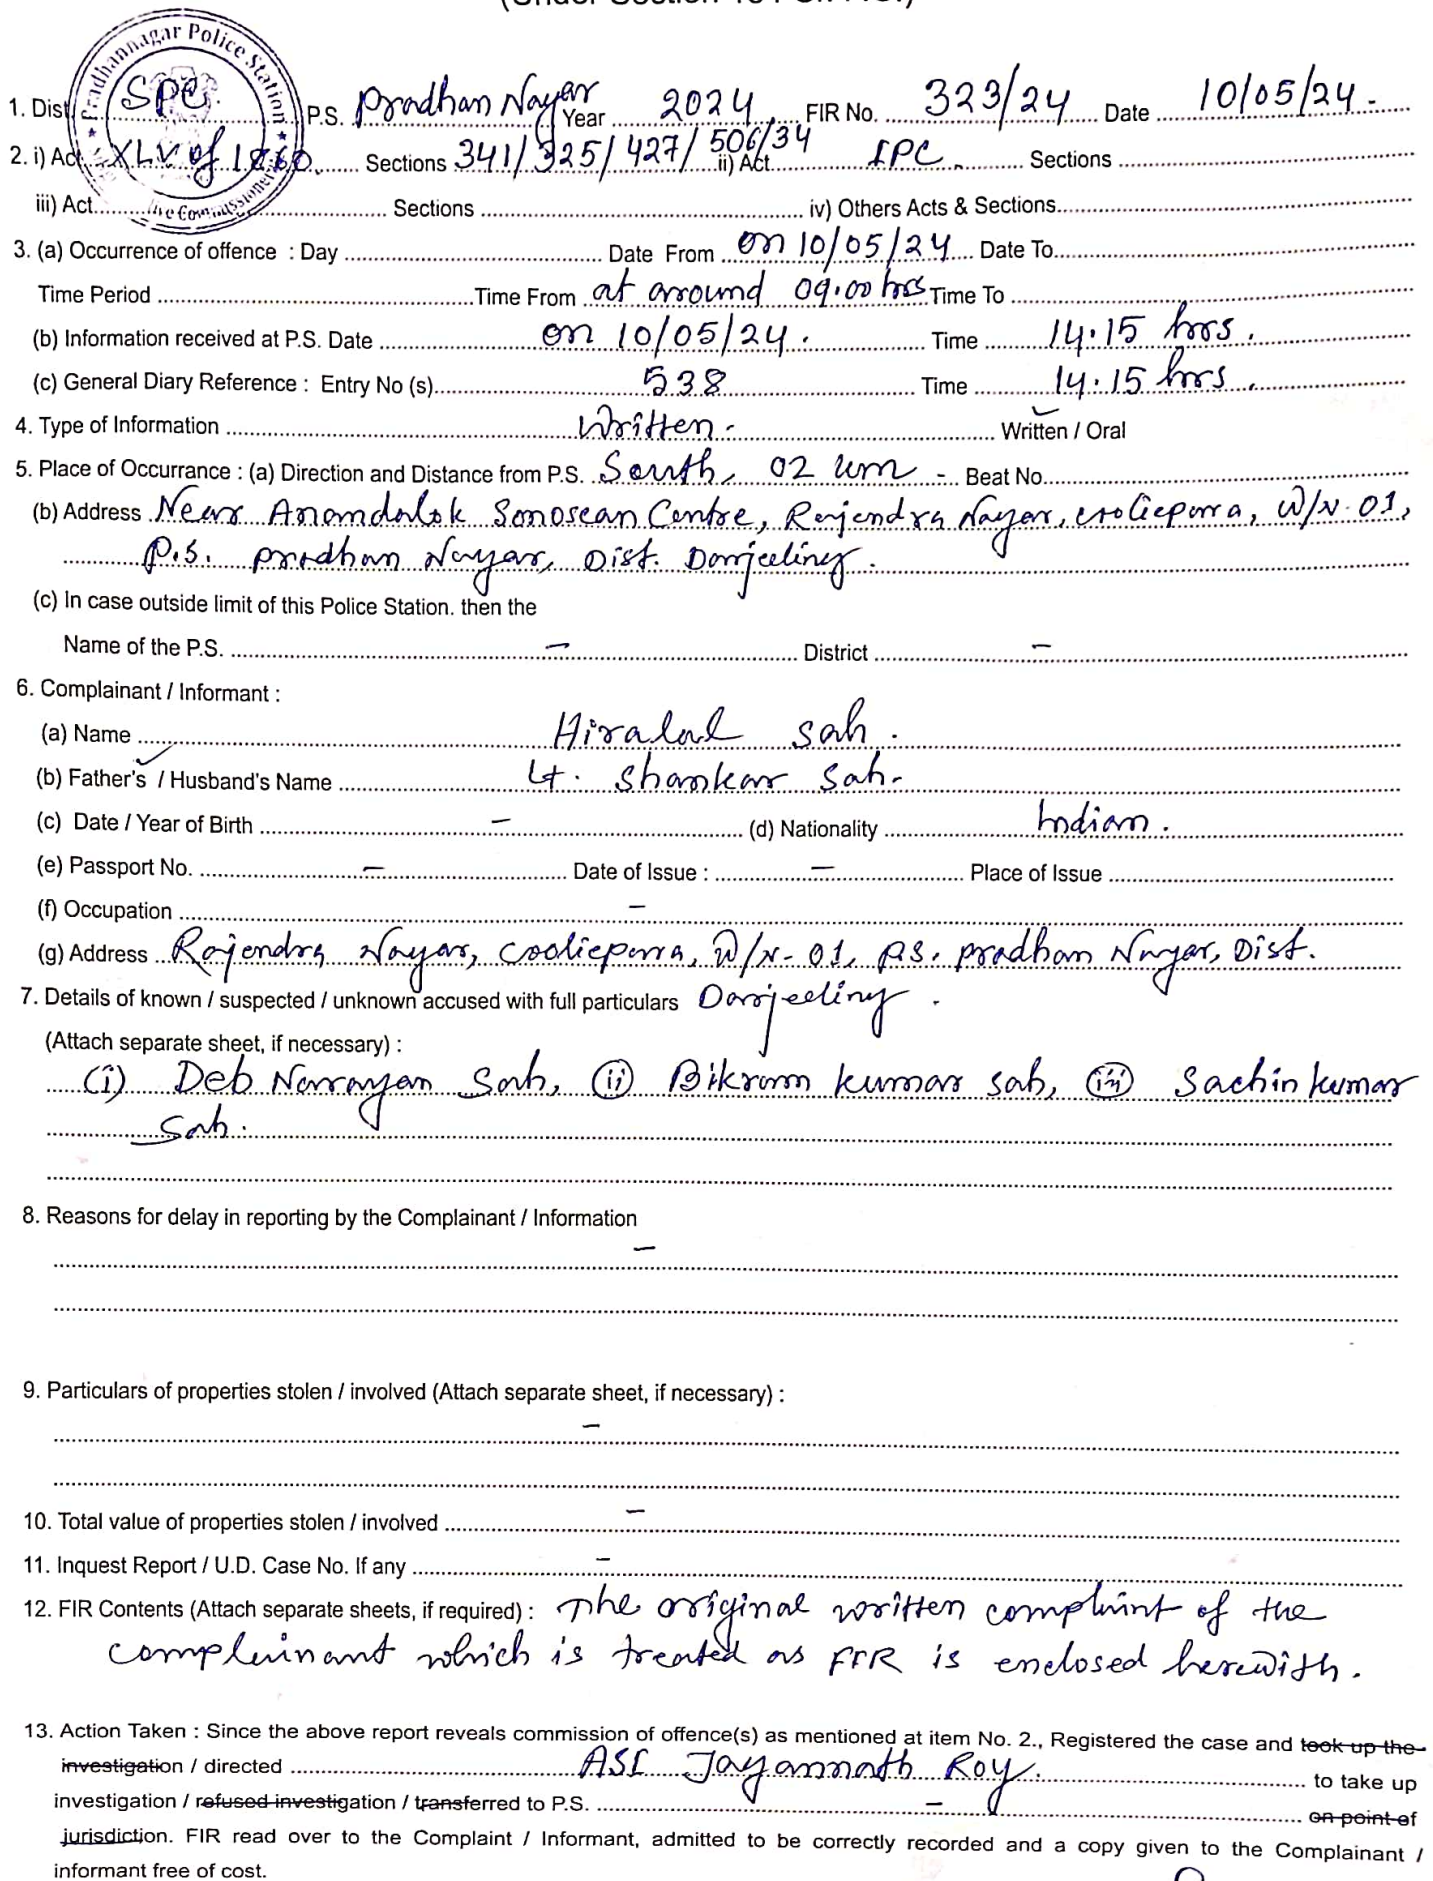 (Under Section 154 Cr. P.C.)
Pradhannagar Police Station
1. Dist SPC. P.S. Pradhan Nagar Year 2024 FIR No. 323/24 Date 10/05/24.
2. i) Act XLV of 1860. Sections 341/325/427/506/34 ii) Act IPC. Sections
iii) Act Sections iv) Others Acts & Sections
3. (a) Occurrence of offence : Day Date From on 10/05/24 Date To
Time Period Time From at around 09.00 hrs Time To
(b) Information received at P.S. Date on 10/05/24. Time 14.15 hrs.
(c) General Diary Reference : Entry No (s) 538 Time 14.15 hrs.
4. Type of Information Written. Written / Oral
5. Place of Occurrance : (a) Direction and Distance from P.S. South, 02 km - Beat No.
(b) Address Near Anandalok Sonoscan Centre, Rajendra Nagar, cooliepara, W/N. 01,
P.S. Pradhan Nagar, Dist. Darjeeling.
(c) In case outside limit of this Police Station. then the
Name of the P.S. – District –
6. Complainant / Informant :
(a) Name Hiralal Sah.
(b) Father's / Husband's Name Lt. Shankar Sah.
(c) Date / Year of Birth – (d) Nationality Indian.
(e) Passport No. – Date of Issue : – Place of Issue
(f) Occupation –
(g) Address Rajendra Nagar, Cooliepara, W/N- 01, P.S. Pradhan Nagar, Dist.
7. Details of known / suspected / unknown accused with full particulars Darjeeling.
(Attach separate sheet, if necessary) :
(i) Deb Narayan Sah, (ii) Bikram Kumar Sah, (iii) Sachin Kumar
Sah.
8. Reasons for delay in reporting by the Complainant / Information
–
9. Particulars of properties stolen / involved (Attach separate sheet, if necessary) :
–
10. Total value of properties stolen / involved –
11. Inquest Report / U.D. Case No. If any –
12. FIR Contents (Attach separate sheets, if required) : The original written complaint of the
complainant which is treated as FIR is enclosed herewith.
13. Action Taken : Since the above report reveals commission of offence(s) as mentioned at item No. 2., Registered the case and took up the
investigation / directed ASI Jagannath Roy. to take up
investigation / refused investigation / transferred to P.S. – on point of
jurisdiction. FIR read over to the Complaint / Informant, admitted to be correctly recorded and a copy given to the Complainant /
informant free of cost.